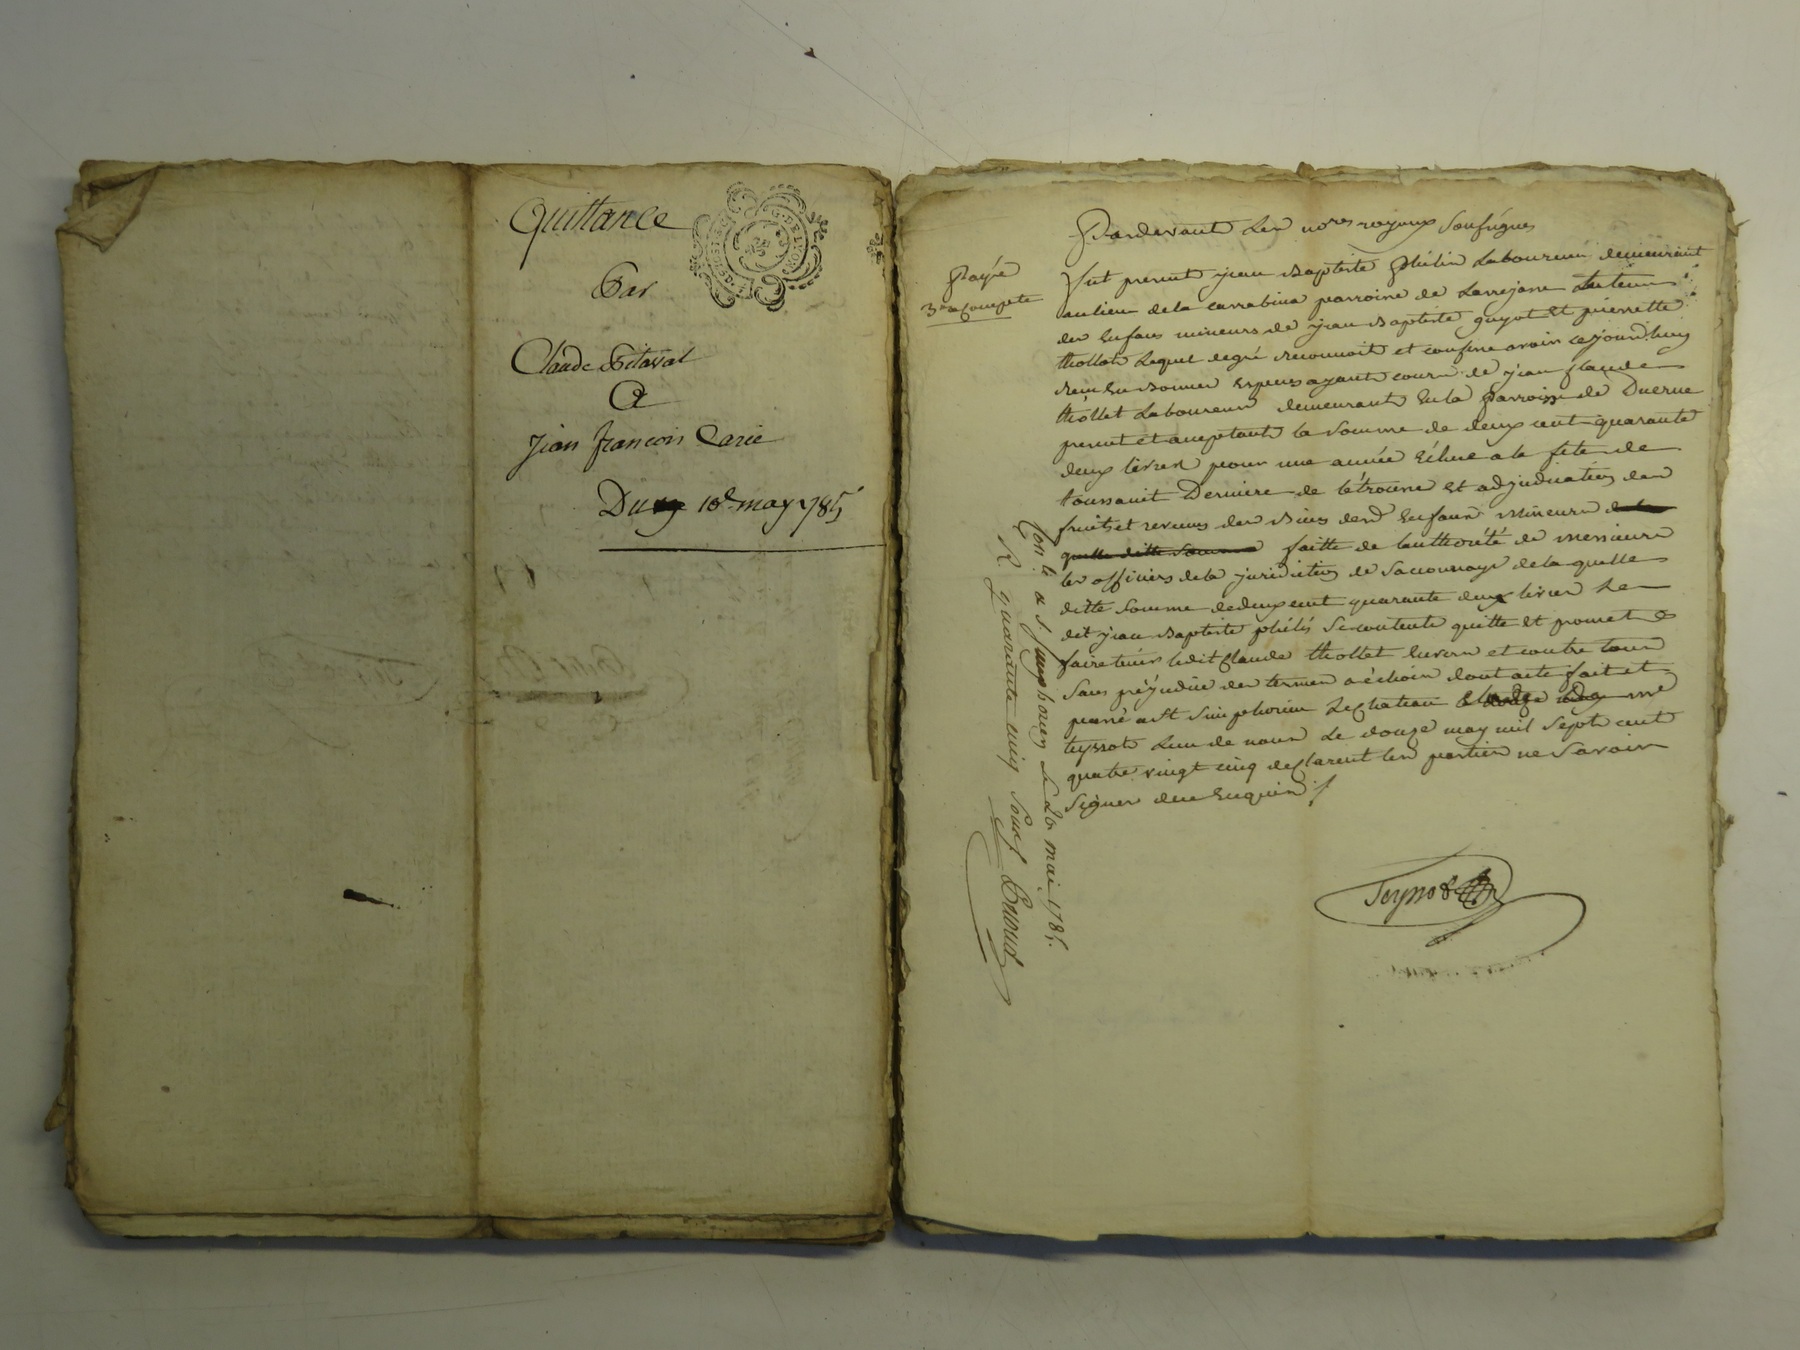 Quittance
G. DE LYON
Par
Claude Pitaval
A
Jean françois Carie
Du 10e may 1785
Payé
3 a Compte
Pardevant Les nores royaux Soussignés
fut present jean Baptiste phelin Laboureur demeurant
au lieu de la carrabina parroisse de Larrajasse tuteur
des Enfans mineurs de jean Baptiste guyot Et pierrette
thollot Lequel de gré reconnoit et confesse avoir ce jourd'huy
reçu En Bonnes Especes ayant cours de jean Claude
thollet Laboureur demeurant En la Parroisse de Duerne
present et acceptant la Somme de deux cent quarante
deux livres pour une année Echue a la fête de
toussaint Derniere de Létrousse Et adjudication des
fruits et revenus des Biens desd Enfans Mineurs de la
quelle ditte Somme faitte de Lauthorité de messieurs
les officiers de la juridiction de Saconnay de la quelle
ditte Somme de deux cent quarante deux livres Le
dit jean Baptiste phelis Se contente quitte Et promet
faire tenir ledit Claude thollet Envers et contre tous
Sans préjudice des termes a échoir dont acte fait et
passé a St Simphorien Le Chateau me
teyssot Lun de nous Le douze may mil Sept cent
quatre vingt cinq declarent les parties ne Savoir
Signer de ce Enquis
Con. lé a St Simphorien le 20 mai 1785.
R. quarante cinq Sous
Teyssot